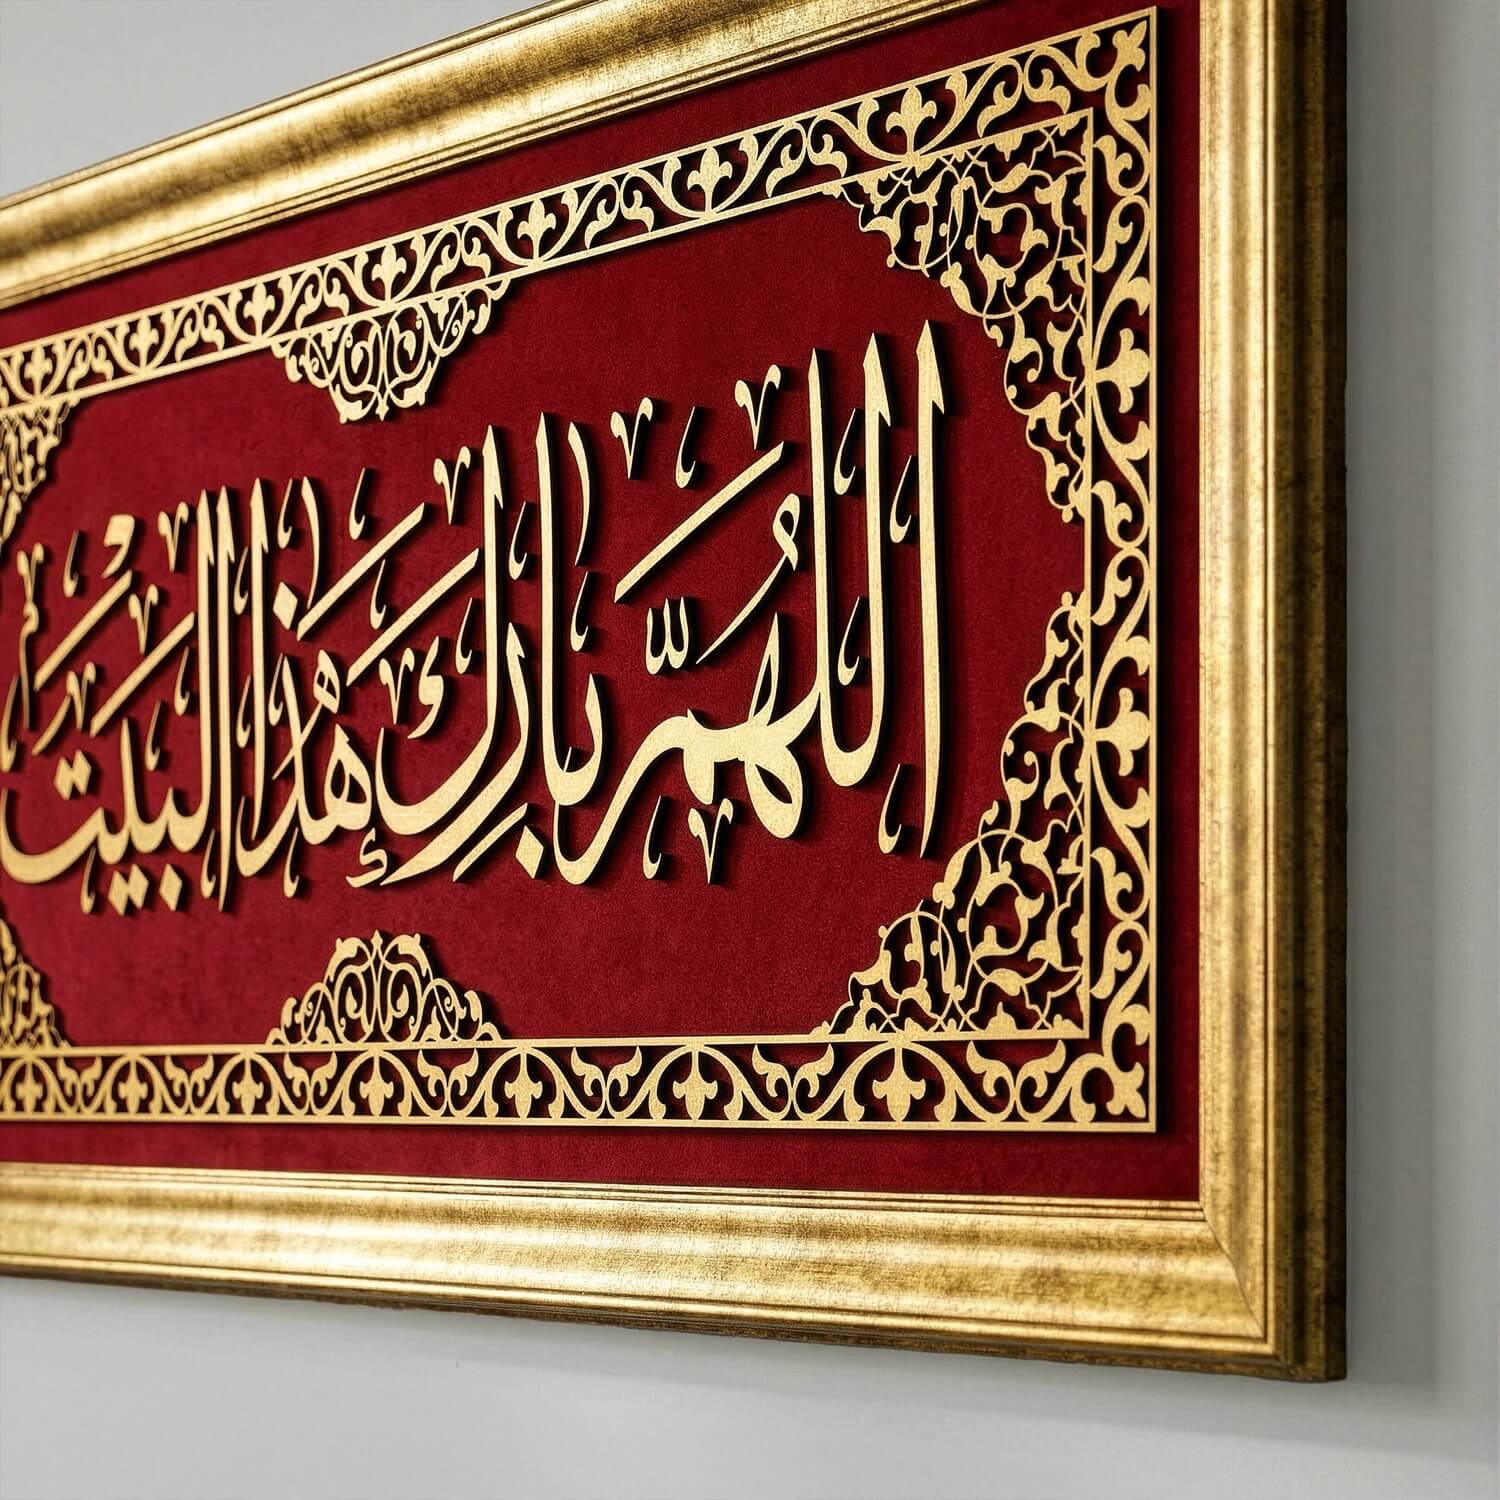 اللهم بارك هذا البيت